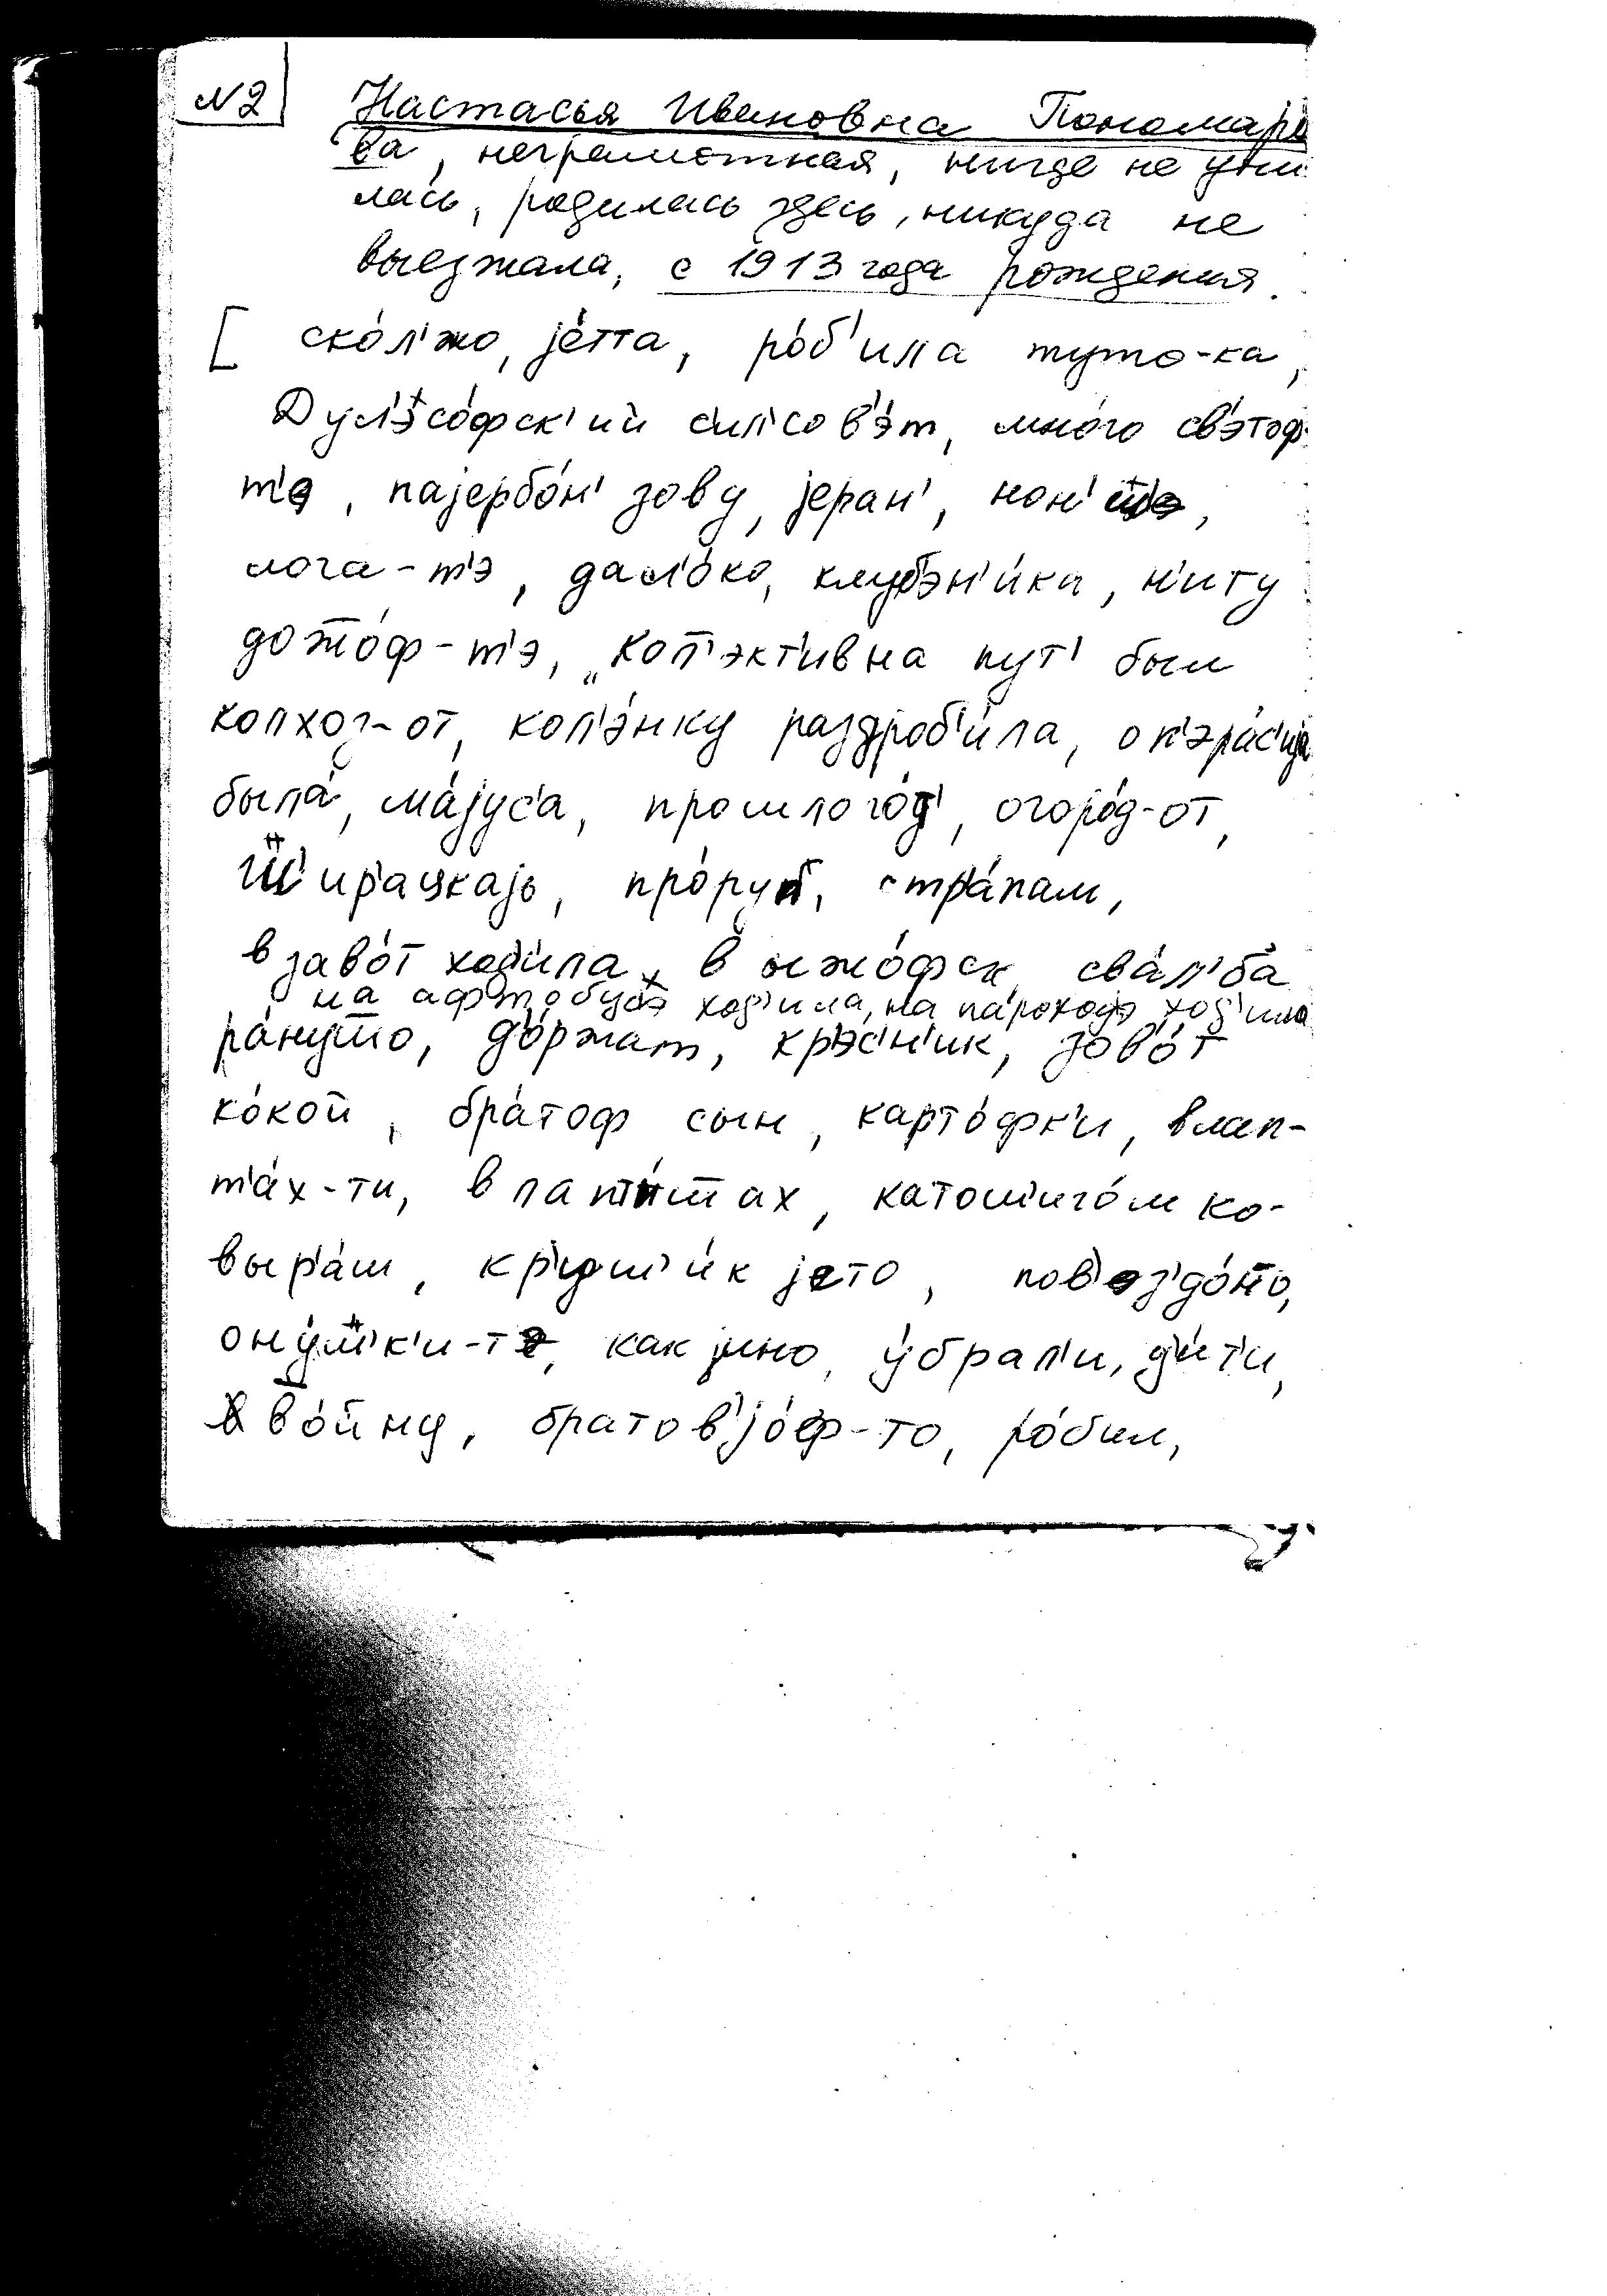 №2 Настасья Ивановна Пономаре
ва, неграмотная, нигде не учи
лась, родилась здесь, никуда не
выезжала, с 1913 года рождения.
[ ско́л'жо, jéтта, ро́б'ила туто-ка,
с'ил'сов'э́т, мно́го св'э́тоф-
т'э, паjербо́н' зову, jеран',
лога-т'э, дал'о́ко, клубэн'и́ка, н'иту
дожжо́ф-т'э, „кол'эктивна пут' был
колхоз-от, кол'э́нку раздроб'и́ла, оп'эра́с'иjа
была́, ма́jус'а, прошлого́д', огоро́д-от,
про́руб, стра́пам,
в заво́т ход'и́ла, в ижо́фск, сва́л'ба
на афтобус'э ход'ила, на па́роход'э ход'ила
до́ржат, хр'э́с'н'ик, зов'о́т
ко́кой, бра́тоф сын, карто́фк'и, в лап-
т'а́х-ти, ко-
выр'а́ш, jето,
как jино, у́брал'и, д'и́т'и,
во́йну, братов'jо́ф-то, ро́бил,